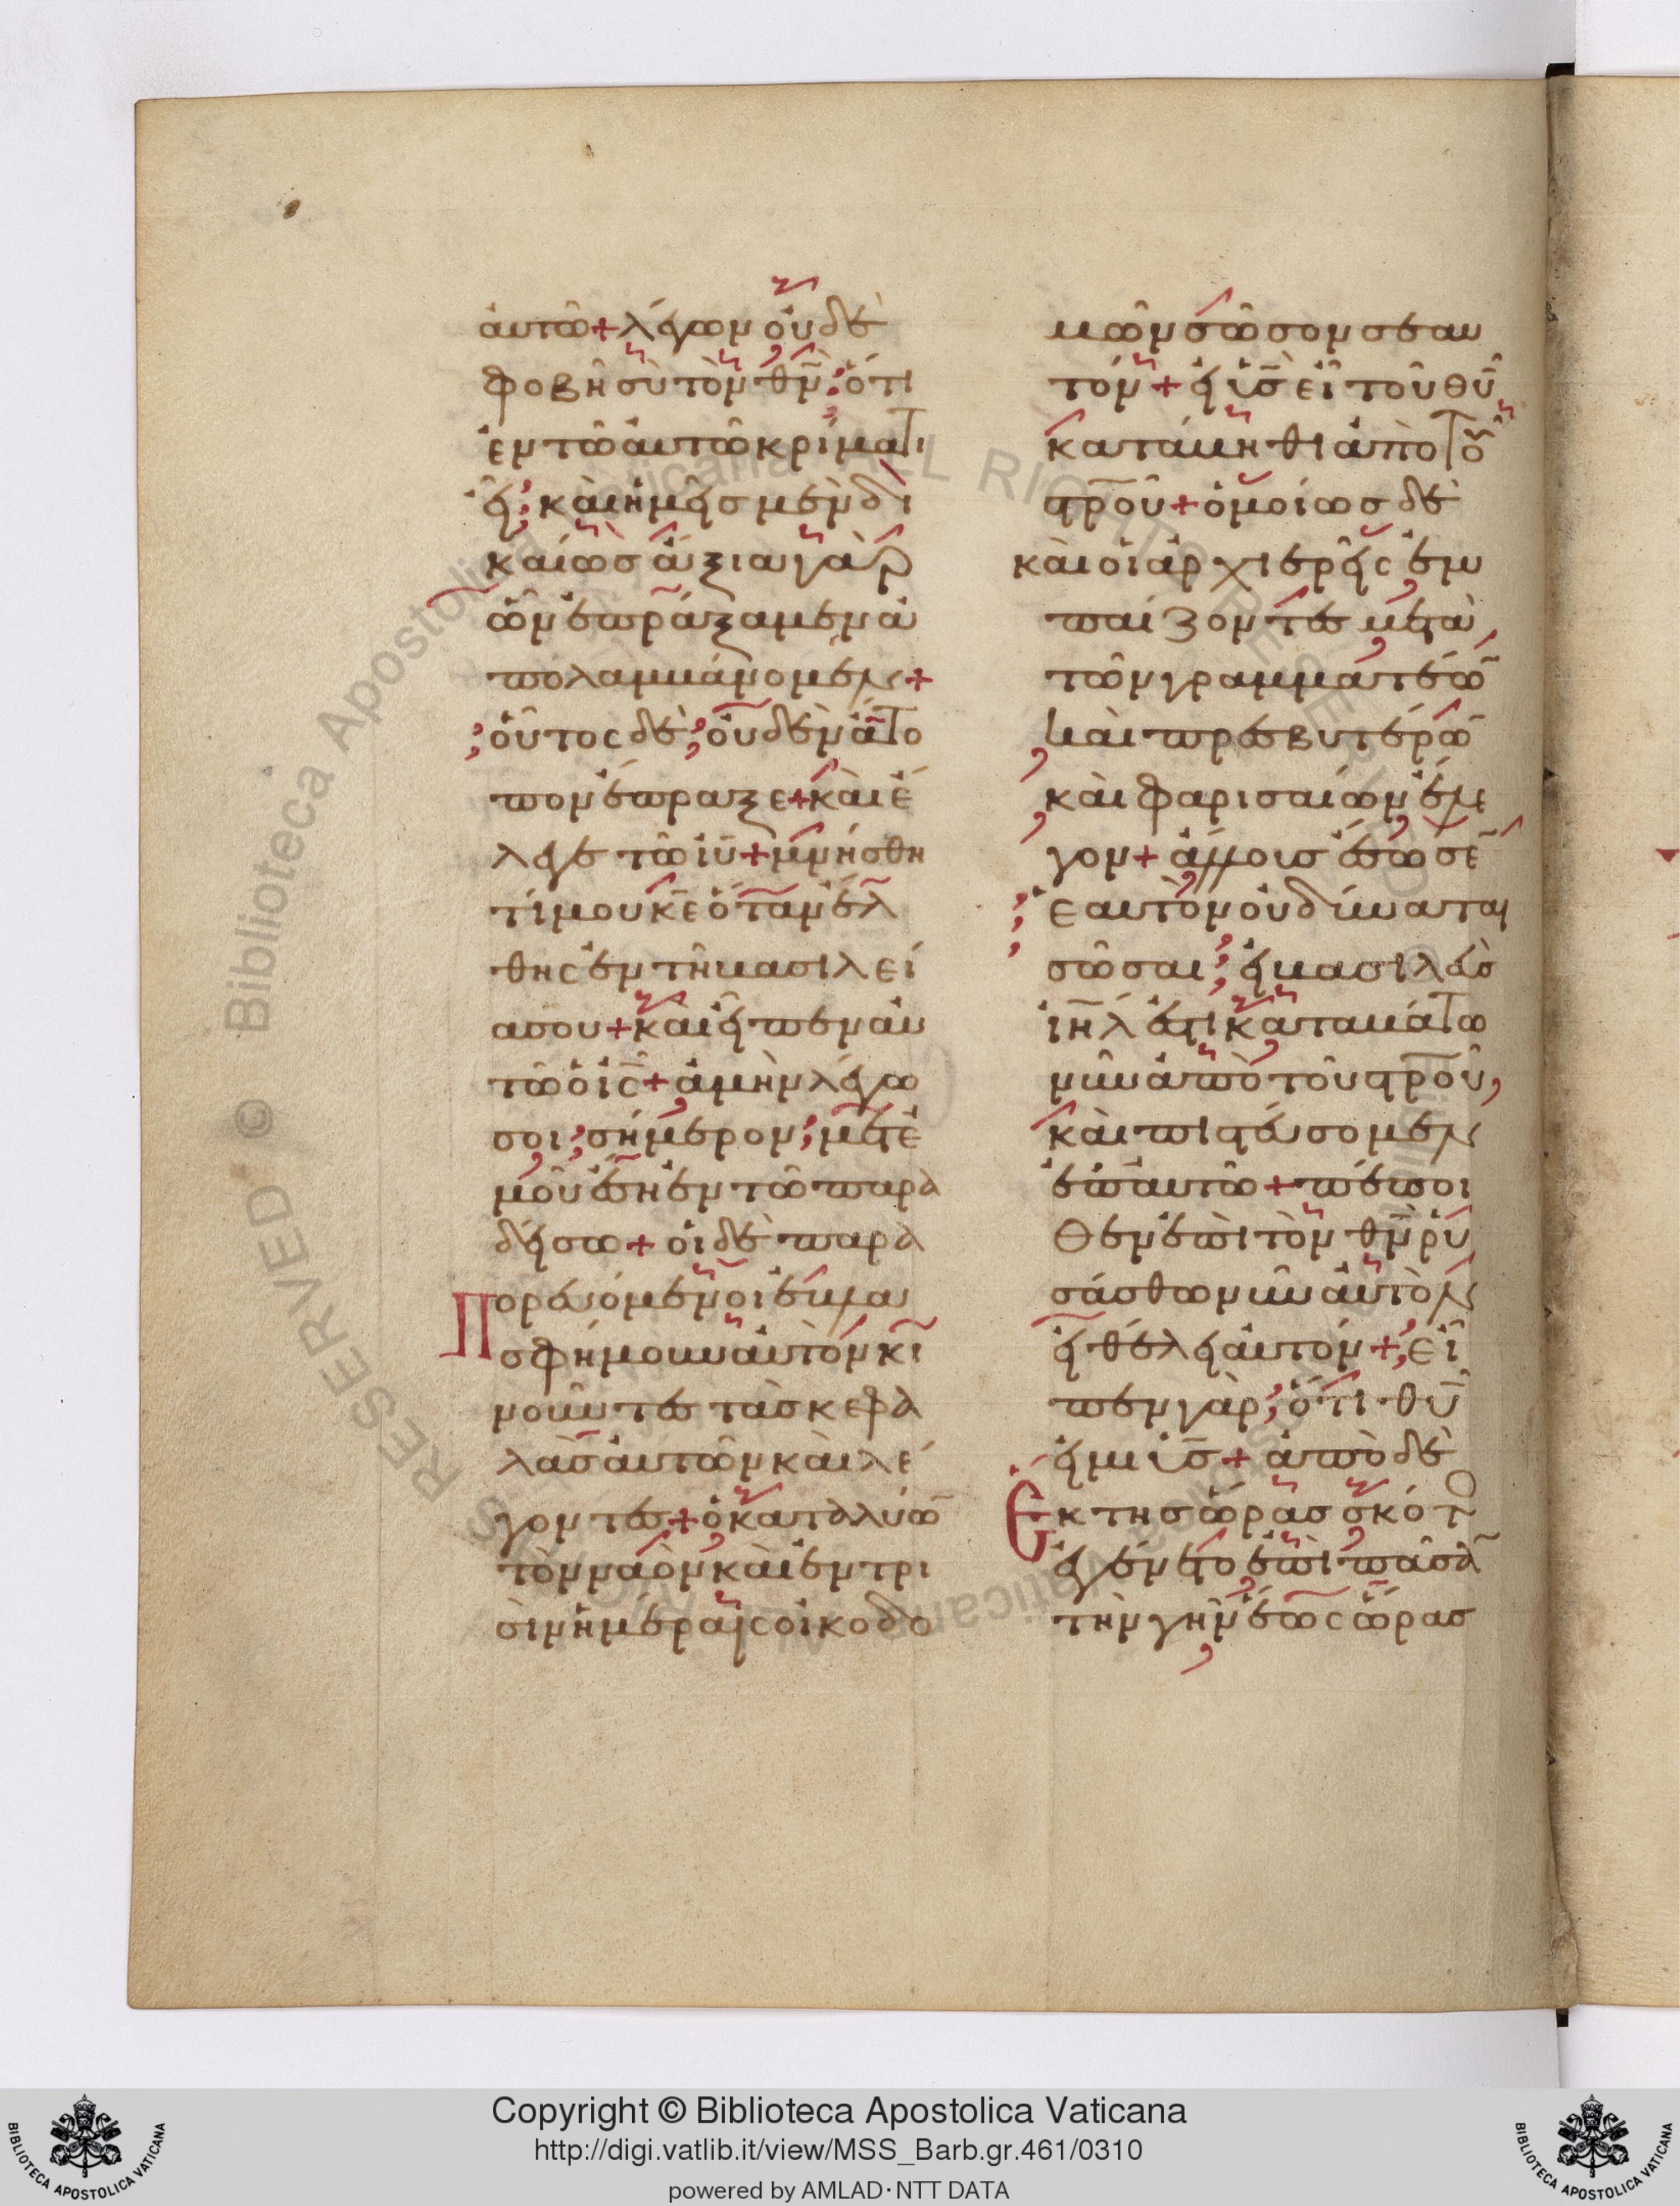 αὐτῶ + λέγων οὐδὲ
φοβῆ σὺ τὸν θν̄ ; ὅτι
ἐν τῶ αὐτῶ κρίματι
εἶ ; καὶ ἡμεῖσ μὲν δι
καίωσ ἄξια γὰρ
ὧν ἐπράξαμεν ἀ
πολαμβάνομεν +
οὗτος δὲ ; οὐδὲν ἄτο
πον ἔπραξε + καὶ ἔ
λεγε τῶ ιῡ + μνήσθη
τί μου κε̄ ὅταν ἔλ
θης ἐν τῆ βασιλεί
α σου + καὶ εἶπεν αὐ
τῶ ὁ ις̄ + ἀμὴν λέγω
σοι ; σήμερον ; μετ ἐ
μοῦ ἔση ἐν τῶ παρα
δείσω + οἱ δὲ παρα
Πορευόμενοι ἐβλα
σφήμουν αὐτὸν κι
νοῦντεσ τὰσ κεφα
λὰσ αὐτῶν καὶ λέ
γοντεσ + ὁ καταλύω̄
τὸν ναὸν καὶ ἐν τρι
σὶν ἡμέραις οἰκοδο
μῶν σῶσον σεαυ
τόν + εἰ υἱσ̄ εἶ τοῦ θῡ
κατάβηθι ἀπὸ τοῦ
στρ̄οῦ + ὁμοίωσ δὲ
καὶ οἱ ἀρχιερεῖς ἐμ
παίζοντεσ μετὰ
τῶν γραμματέω̄
καὶ πρεσβυτέρω̄
καὶ φαρισαίων ἔλε
γον + ἄλλουσ ἔσωσε̄
ἑαυτὸν οὐ δύναται
σῶσαι ; εἰ βασιλεὺσ
ιη̄λ ἐστι καταβάτω
νῦν ἀπὸ τοῦ στρ̄οῦ
καὶ πιστεύσομεν
ἐπ αὐτῶ + πέποι
θεν ἐπὶ τὸν θν̄ ῥυ
σάσθω νῦν αὐτὸν
εἰ θέλει αὐτόν + εἶ
πεν γὰρ ; ὅτι θῡ
εἰμι υἱσ̄ + ἀπὸ δὲ
Ἕκτησ ὥρασ σκότ
ἐγένετο ἐπὶ πᾶσᾱ
τὴν γῆν ἕως ὥρασ
Copyright © Biblioteca Apostolica Vaticana
http://digi.vatlib.it/view/MSS_Barb.gr.461/0310
powered by AMLAD·NTT DATA